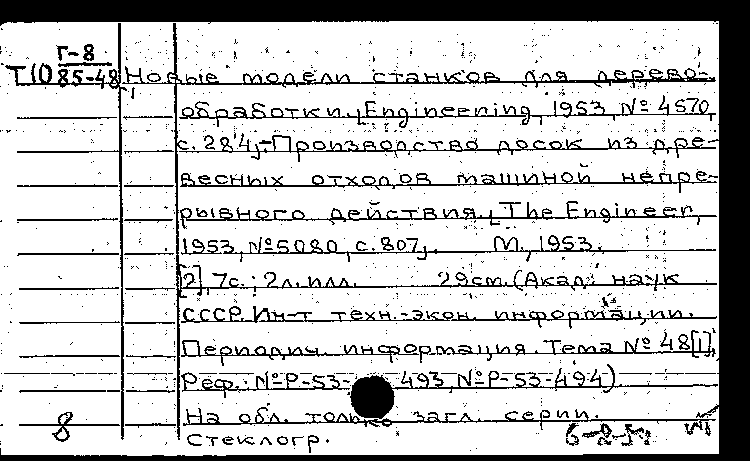 Г-8
Т10 85-48 Новые модели станков для дерево-
обработки. [Engineering, 1953, № 4570,
с. 284]. - Производство досок из дре-
весных отходов машиной непре-
рывного действия. [The Engineer,
1953, № 5080, с. 807]. М., 1953.
[2], 7с.; 2л. илл. 29см. (Акад. наук
СССР. Ин-т техн.-экон. информации.
Периодич. информация. Тема № 48[1],
Реф.: №Р-53-493, №Р-53-494)
На обл. только загл. серии.
8 Стеклогр.